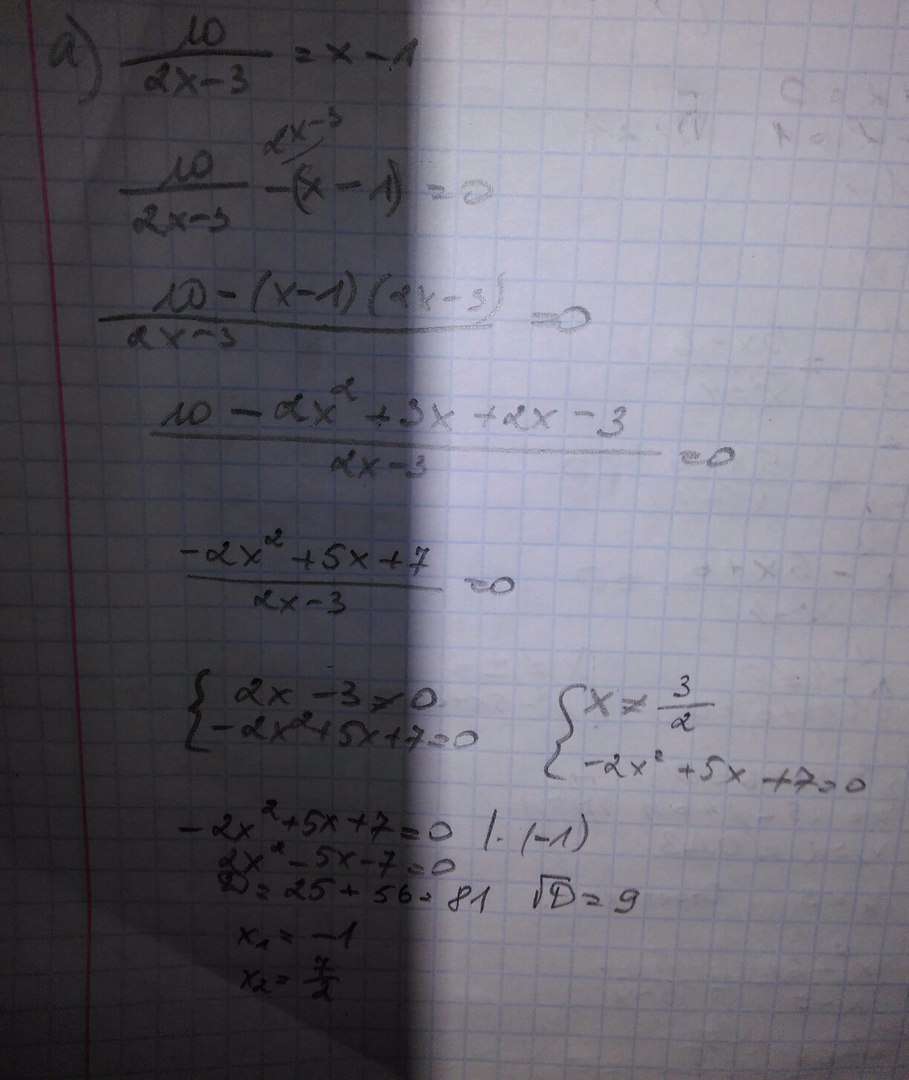 а) 10/(2x-3) = x - 1
2x-3
10/(2x-3) - (x - 1) = 0
(10 - (x-1)(2x-3))/(2x-3) = 0
(10 - 2x² + 3x + 2x - 3)/(2x-3) = 0
(-2x² + 5x + 7)/(2x-3) = 0
{ 2x - 3 ≠ 0 { x ≠ 3/2
-2x² + 5x + 7 = 0 -2x² + 5x + 7 = 0
-2x² + 5x + 7 = 0 |·(-1)
2x² - 5x - 7 = 0
D = 25 + 56 = 81 √D = 9
x₁ = -1
x₂ = 7/2